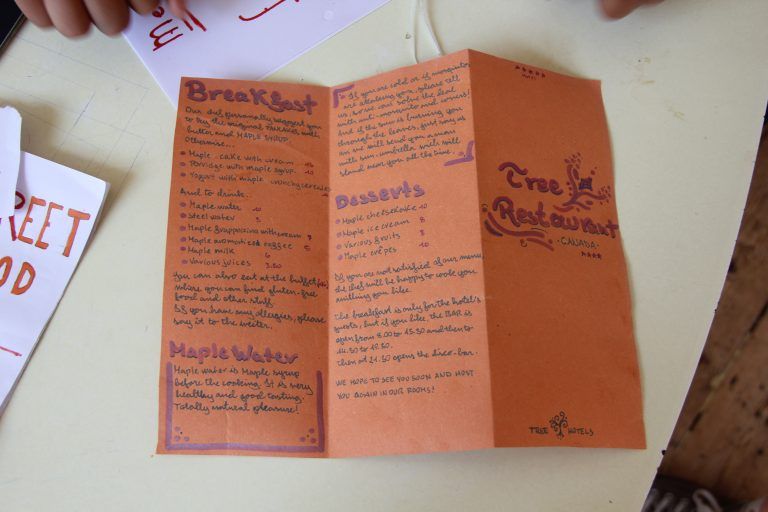 Time
REET
OD
Breakfast
Our chef personally suggest you
to try the original PANCAKES with
butter and MAPLE SYRUP.
Otherwise...
Maple cake with cream
Porridge with maple syrup 10
Yogurt with maple crunchy cereals
And to drink...
Maple water 10
Steel water 3
Maple frappuccino with cream 8
Maple aromatized coffee 5
Maple milk 6
Various juices 3.50
You can also eat at the buffet
where you can find gluten-free
food and other stuff
If you have any allergies, please
say it to the weiter.
Maple Water
Maple water is Maple syrup
before the cooking. It is very
healthy and good tasting.
Totally natural pleasure!
If you are cold or if mosquitos
are attacking you, please tell
us, so we can solve the deal
with anti-mosquito and covers!
And if the sun is burning you
through the leaves, just say us
an we will send you a man
with sun-umbrella with will
stand near you all the time.
Desserts
Maple cheesecake 10
Maple ice cream 8
Various fruits 8
Maple crêpes 10
If you are not satisfied of our menu
the chef will be happy to cook you
anithing you like.
The breakfast is only for the hotel's
guests, but if you like, the BAR is
open from 8.00 to 13.30 and then to
14.30 to 19.30.
then at 21.30 opens the disco-bar.
WE HOPE TO SEE YOU SOON AND HOST
YOU AGAIN IN OUR ROOMS!
Tree
Restaurant
CANADA
TREE HOTELS